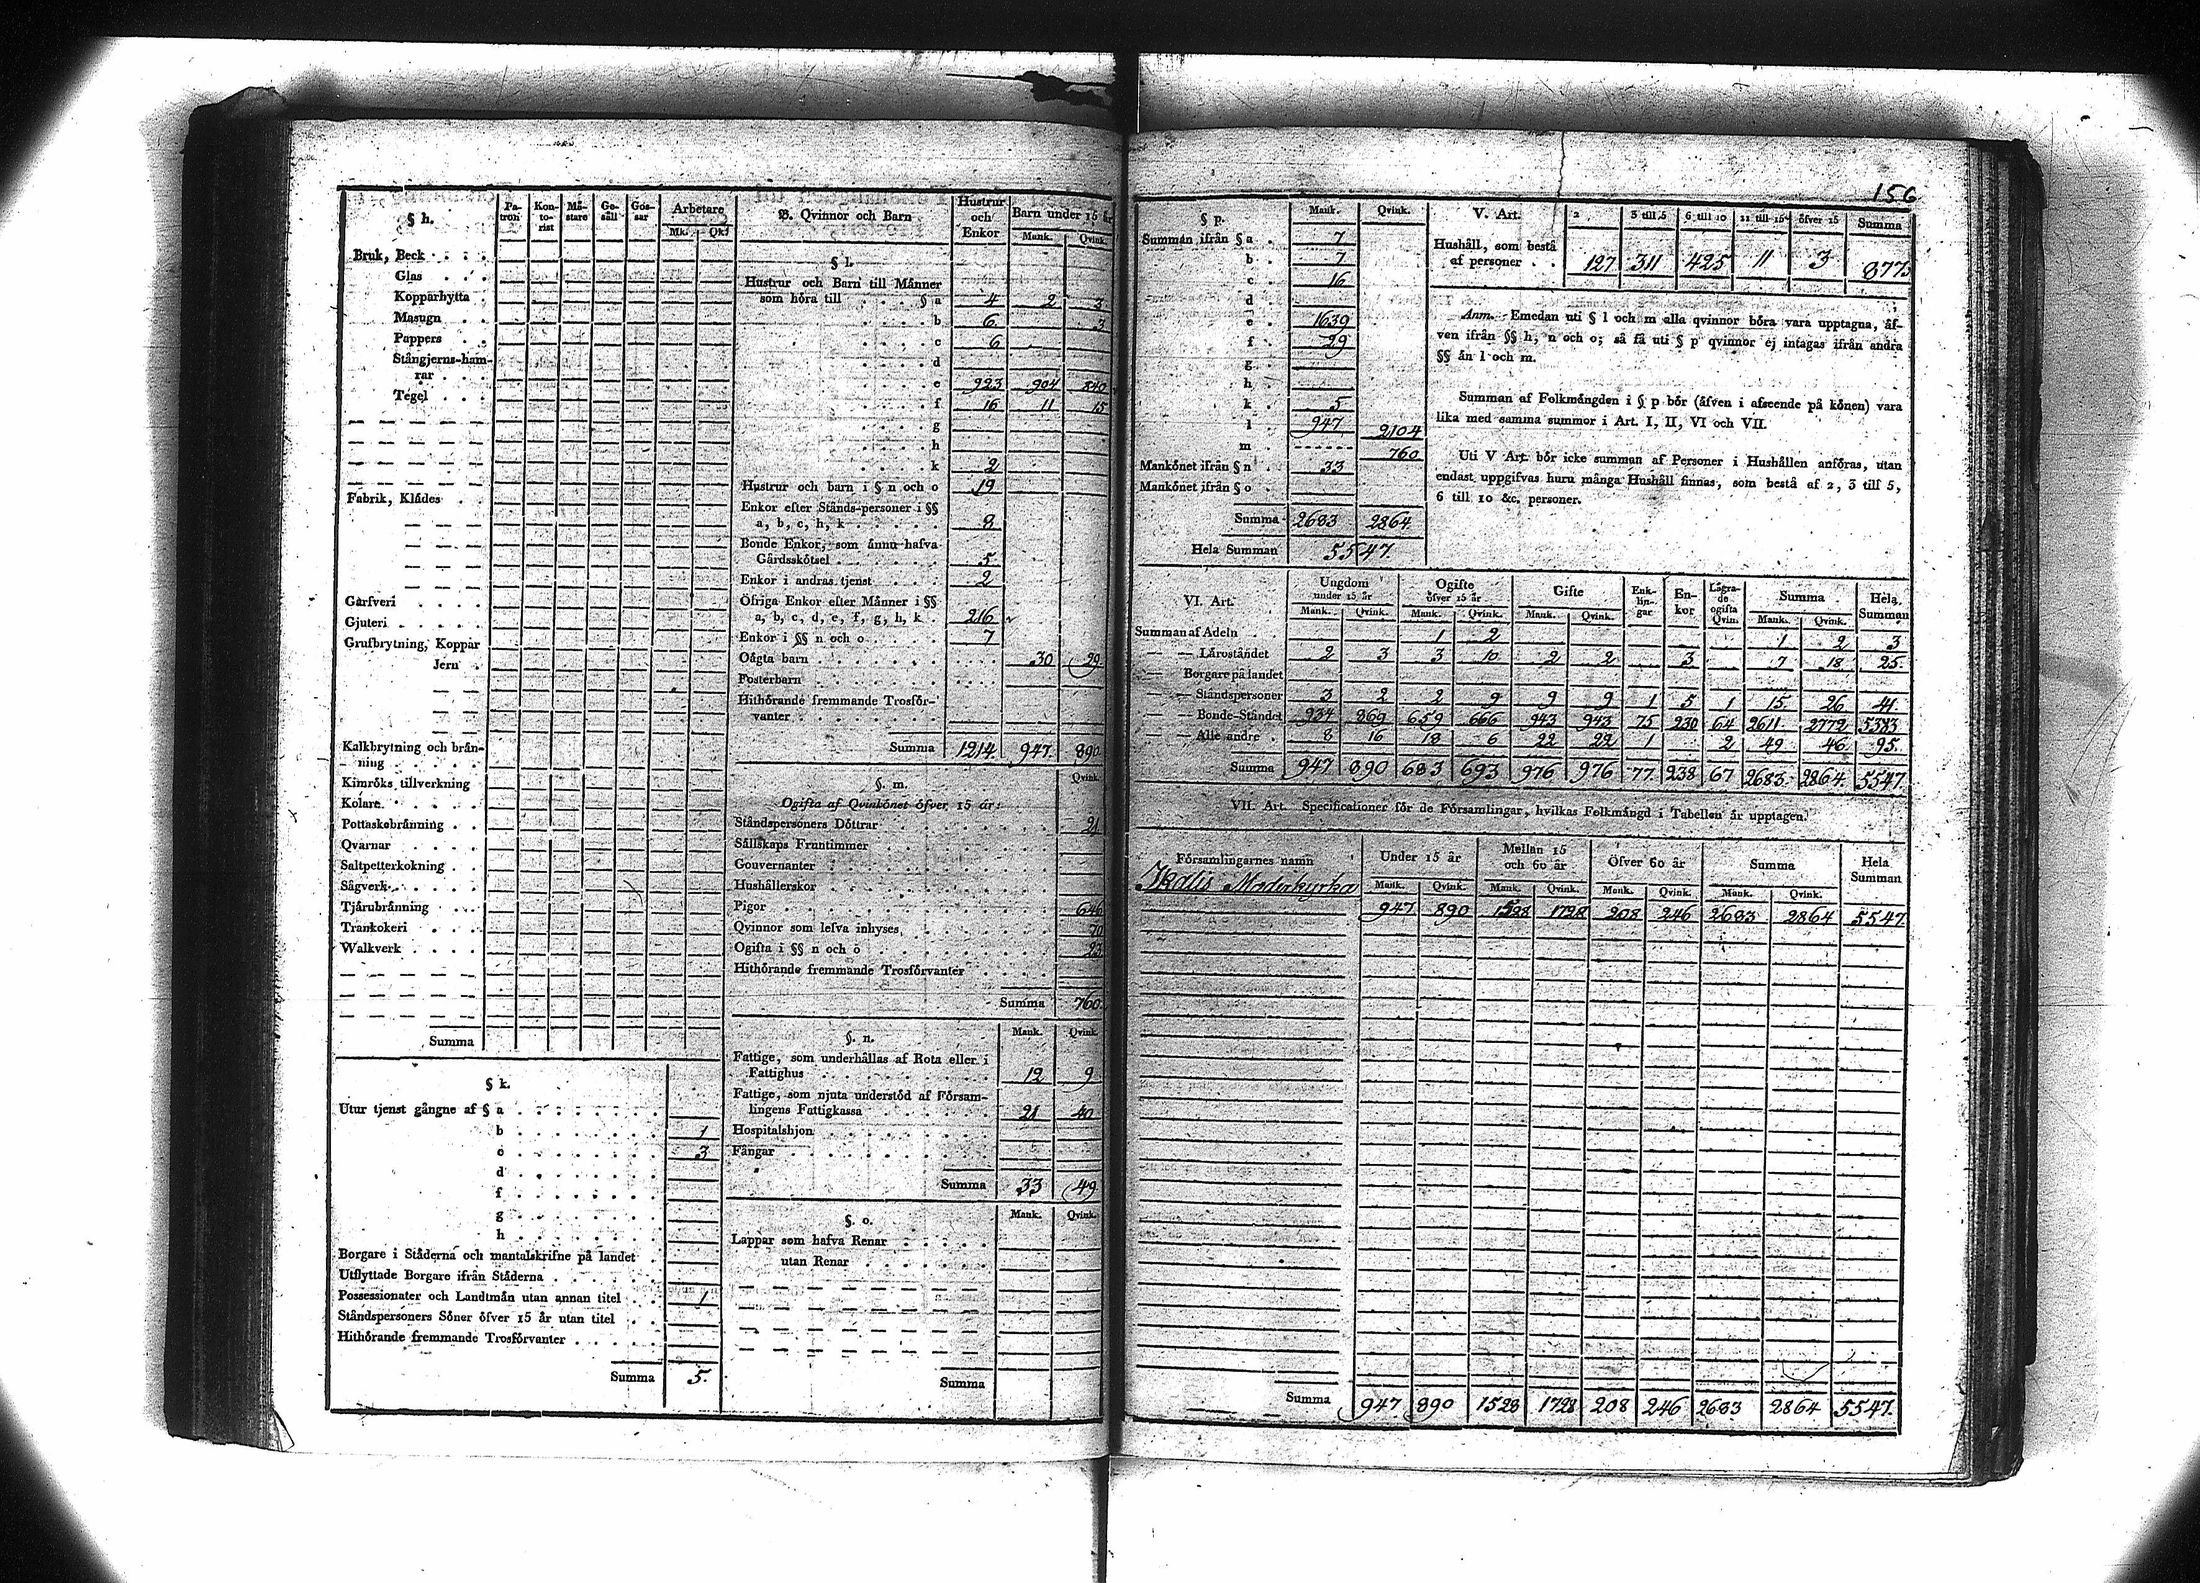 156
§ h.
Patron
Kontorist
Mästare
Gesäll
Gossar
Arbetare
Mk. Qk.
Bruk, Beck
Glas
Kopparhytta
Masugn
Pappers
Stångjerns-hamrar
Tegel
Fabrik, Klådes
Garfveri
Gjuteri
Grufbrytning, Koppar
Jern
Kalkbrytning och bränning
Kimröks tillverkning
Kolare
Pottaskebränning
Qvarnar
Saltpetterkokning
Sågverk
Tjärubränning
Trankokeri
Walkverk
Summa
§ k.
Utur tjenst gångne af § a
b 1
c 3
d
f
g
h
Borgare i Städerna och mantalskrifne på landet
Utflyttade Borgare ifrån Städerna
Possessionater och Landtmän utan annan titel 1
Ståndspersoners Söner öfver 15 år utan titel
Hithörande fremmande Trosförvanter
Summa 5.
B. Qvinnor och Barn
Hustrur och Enkor
Barn under 15 år
Mank. Qvink.
§ l.
Hustrur och Barn till Männer
som höra till § a 4 2 3
b 6 3
c 6
d
e 923 904 840
f 16 11 15
g
h
k 2
Hustrur och barn i § n och o 19
Enkor efter Stånds-personer i §§
a, b, c, h, k 8
Bonde Enkor, som ännu hafva
Gårdsskötsel 5
Enkor i andras tjenst 2
Öfriga Enkor efter Männer i §§
a, b, c, d, e, f, g, h, k 216
Enkor i §§ n och o 7
Oägta barn 30 29
Fosterbarn
Hithörande fremmande Trosförvanter
Summa 1214. 947. 890
§. m.
Qvink.
Ogifta af Qvinkönet öfver 15 år:
Ståndspersoners Döttrar 21
Sällskaps Fruntimmer
Gouvernanter
Hushållerskor
Pigor 646
Qvinnor som lefva inhyses 70
Ogifta i §§ n och o 23
Hithörande fremmande Trosförvanter
Summa 760
Mank. Qvink.
§. n.
Fattige, som underhållas af Rota eller i
Fattighus 12 9
Fattige, som njuta understöd af Församlingens Fattigkassa 21 40
Hospitalshjon
Fångar
Summa 33 49
Mank. Qvink.
§. o.
Lappar som hafva Renar
utan Renar
Summa
§ p.
Mank. Qvink.
Summan ifrån § a 7
b 7
c 16
d
e 1639
f 29
g
h
k 5
l 947 2104
m 760
Mankönet ifrån § n 33
Mankönet ifrån § o
Summa 2683 2864
Hela Summan 5547.
V. Art.
2 3 till 5 6 till 10 11 till 15 öfver 15 Summa
Hushåll, som bestå
af personer 127 311 425 11 3 877
Anm. Emedan uti § l och m alla qvinnor böra vara upptagna, äfven ifrån §§ h, n och o; så få uti § p qvinnor ej intagas ifrån andra
§§ än l och m.
Summan af Folkmängden i § p bör (äfven i afseende på könen) vara
lika med samma summor i Art. I, II, VI och VII.
Uti V Art. bör icke summan af Personer i Hushållen anföras, utan
endast uppgifvas huru många Hushåll finnas, som bestå af 2, 3 till 5,
6 till 10 &c. personer.
VI. Art.
Ungdom under 15 år
Ogifte öfver 15 år
Gifte
Enklingar
Enkor
Lägrade ogifta Qvin.
Summa
Hela Summan
Mank. Qvink. Mank. Qvink. Mank. Qvink. Mank. Qvink.
Summan af Adeln 1 2 1 2 3
— — Läroståndet 2 3 3 10 2 2 3 7 18 25.
— — Borgare på landet
— — Ståndspersoner 3 2 2 9 9 9 1 5 1 15 26 41.
— — Bonde-Ståndet 934 869 659 666 943 943 75 230 64 2611 2772 5383
— — Alle andre 8 16 18 6 22 22 1 2 49 46 95.
Summa 947. 890 683 693 976 976 77. 238 67 2683 2864. 5547.
VII. Art. Specificationer för de Församlingar, hvilkas Folkmängd i Tabellen är upptagen.
Församlingarnes namn
Under 15 år
Mellan 15 och 60 år
Öfver 60 år
Summa
Hela Summan
Mank. Qvink. Mank. Qvink. Mank. Qvink. Mank. Qvink.
Ikalis Moderkyrka
947 890 1528 1728 208 246 2683 2864 5547
Summa 947. 890 1528 1728 208 246 2683 2864 5547.